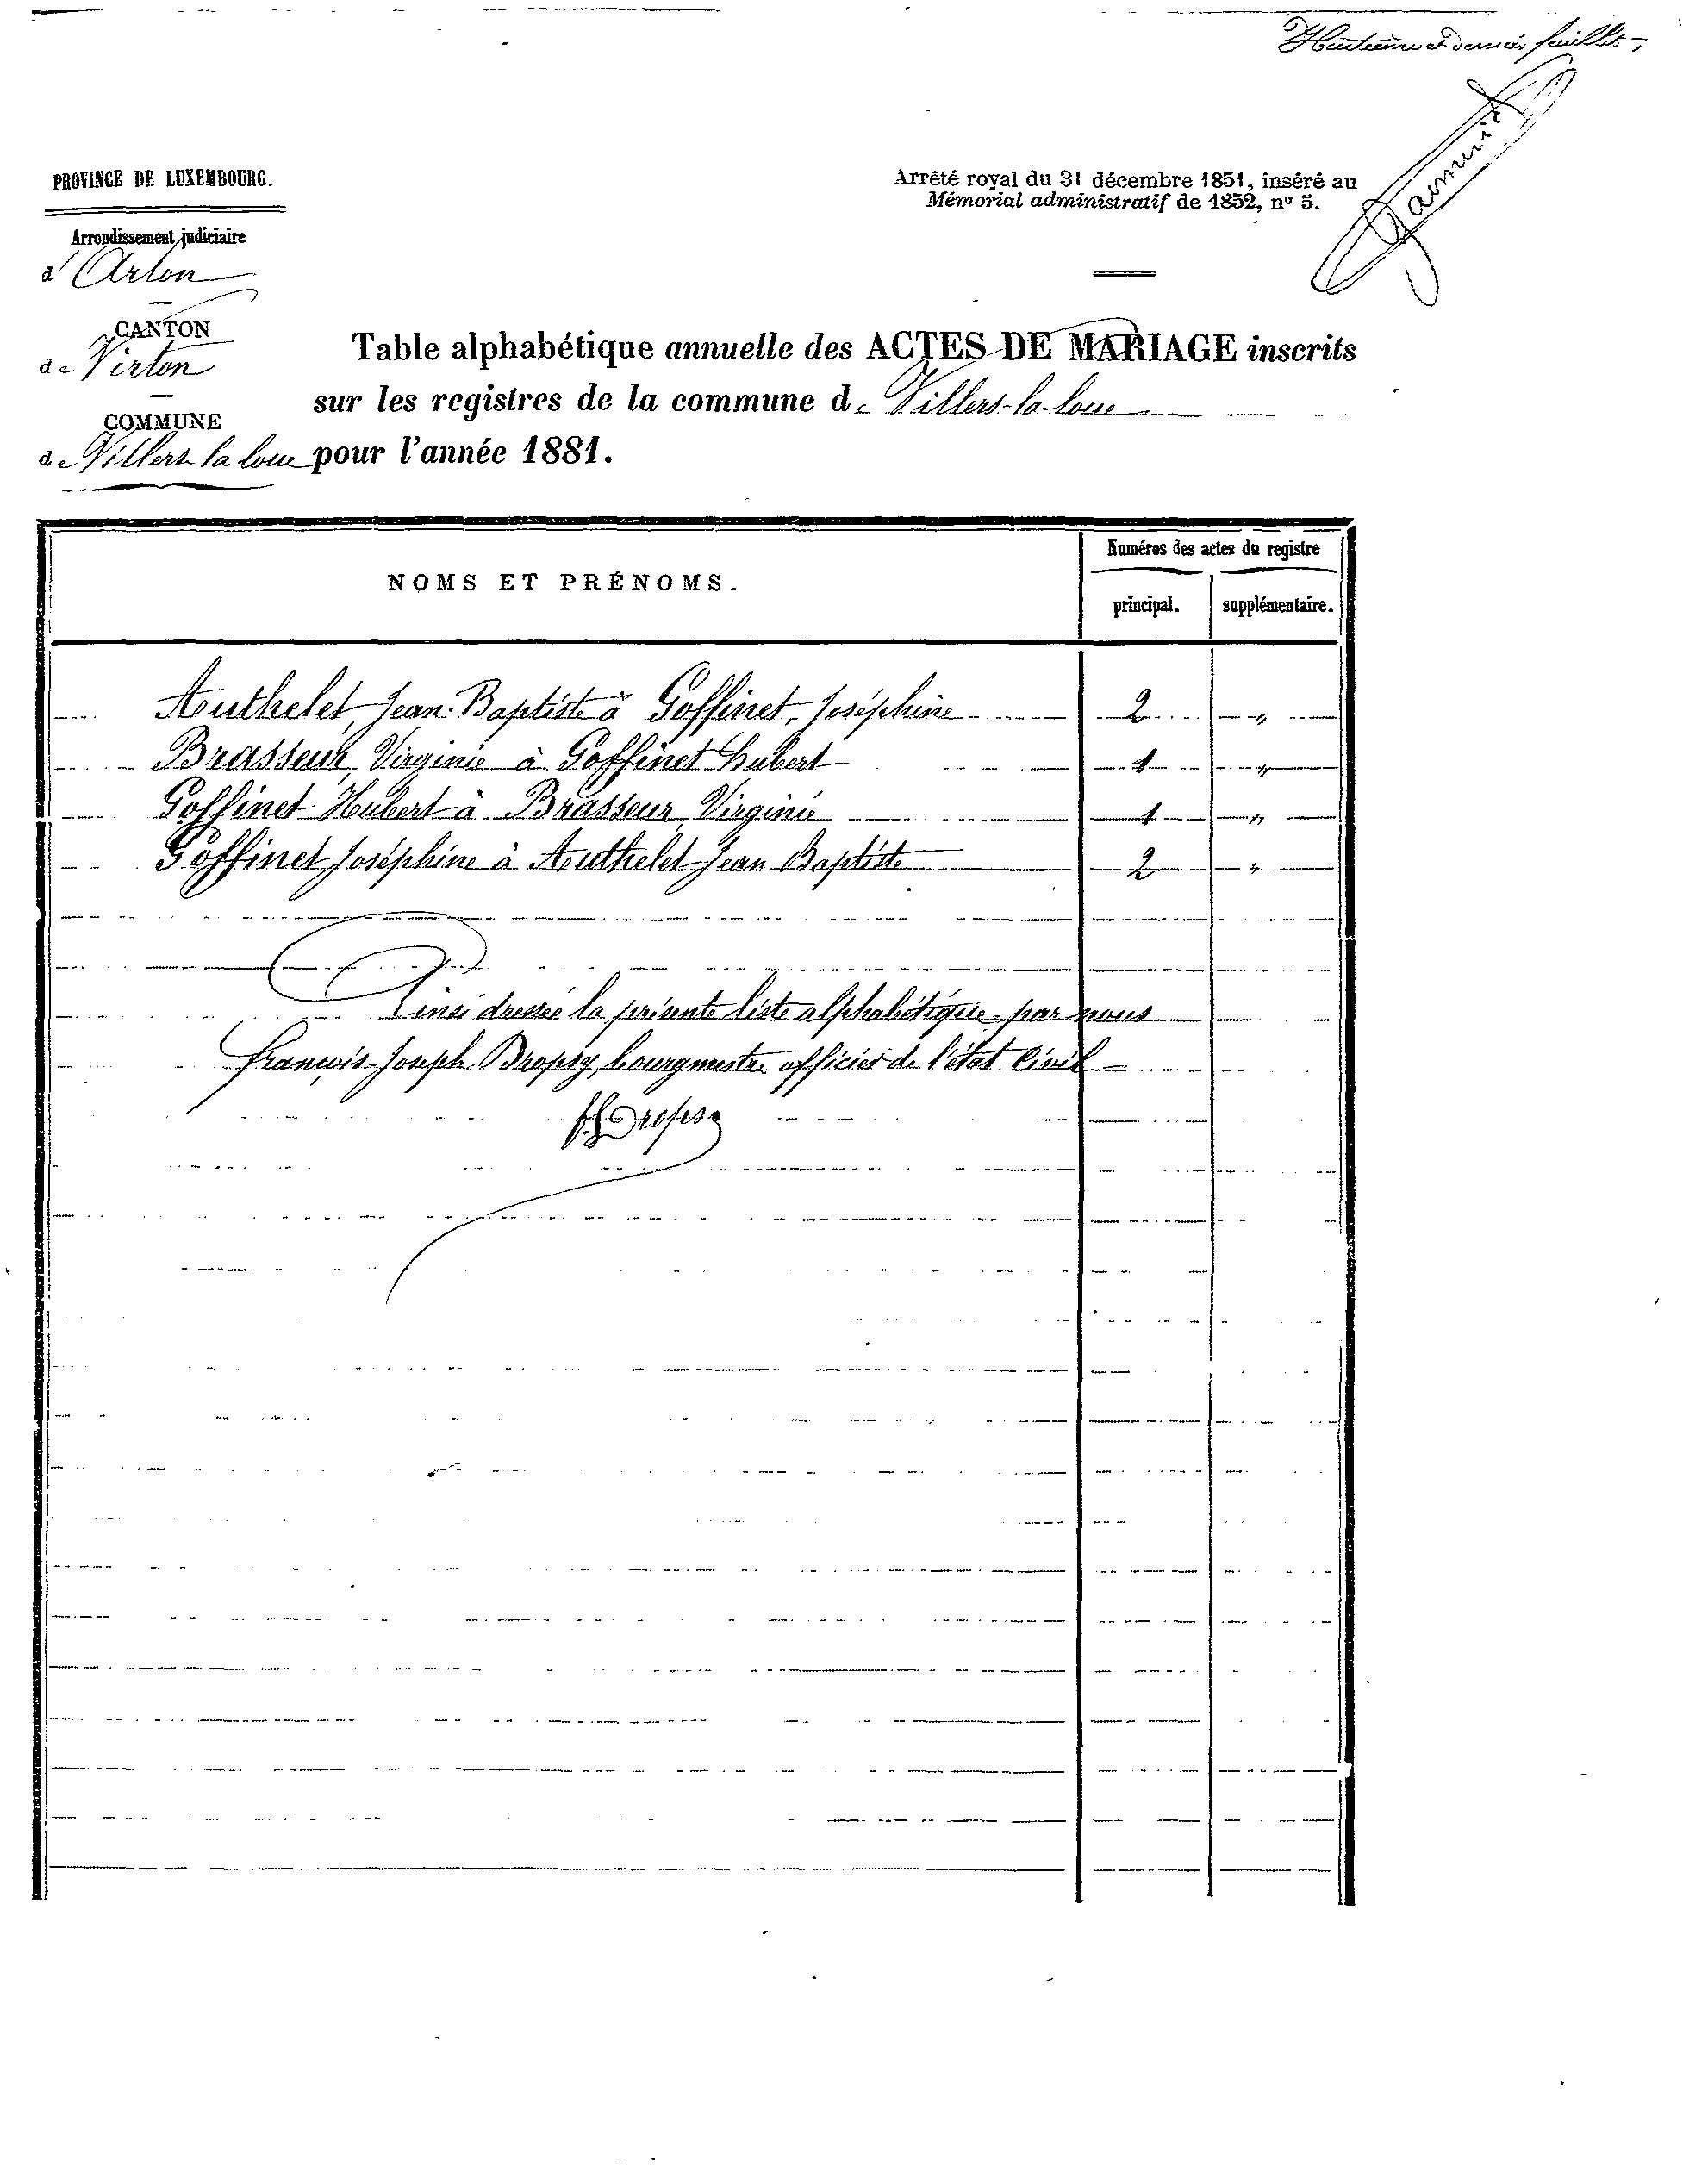 Huitième et dernier feuillet
PROVINCE DE LUXEMBOURG.
Arrêté royal du 31 décembre 1851, inséré au
Mémorial administratif de 1852, nº 5.
Arrondissement judiciaire
d'Arlon
CANTON
de Virton
COMMUNE
de Villers la loue
Table alphabétique annuelle des ACTES DE MARIAGE inscrits
sur les registres de la commune de Villers-la-loue
pour l'année 1881.
NOMS ET PRÉNOMS.
Numéros des actes du registre
principal. supplémentaire.
Authelet, Jean-Baptiste à Goffinet, Joséphine 2 "
Brasseur, Virginie à Goffinet hubert 1 "
Goffinet Hubert à Brasseur, Virginie 1 "
Goffinet Joséphine à Authelet Jean Baptiste 2 "
Ainsi dressée la présente liste alphabétique par nous
françois-Joseph Dropsy, bourgmestre officier de l'état Civil
Dropsy